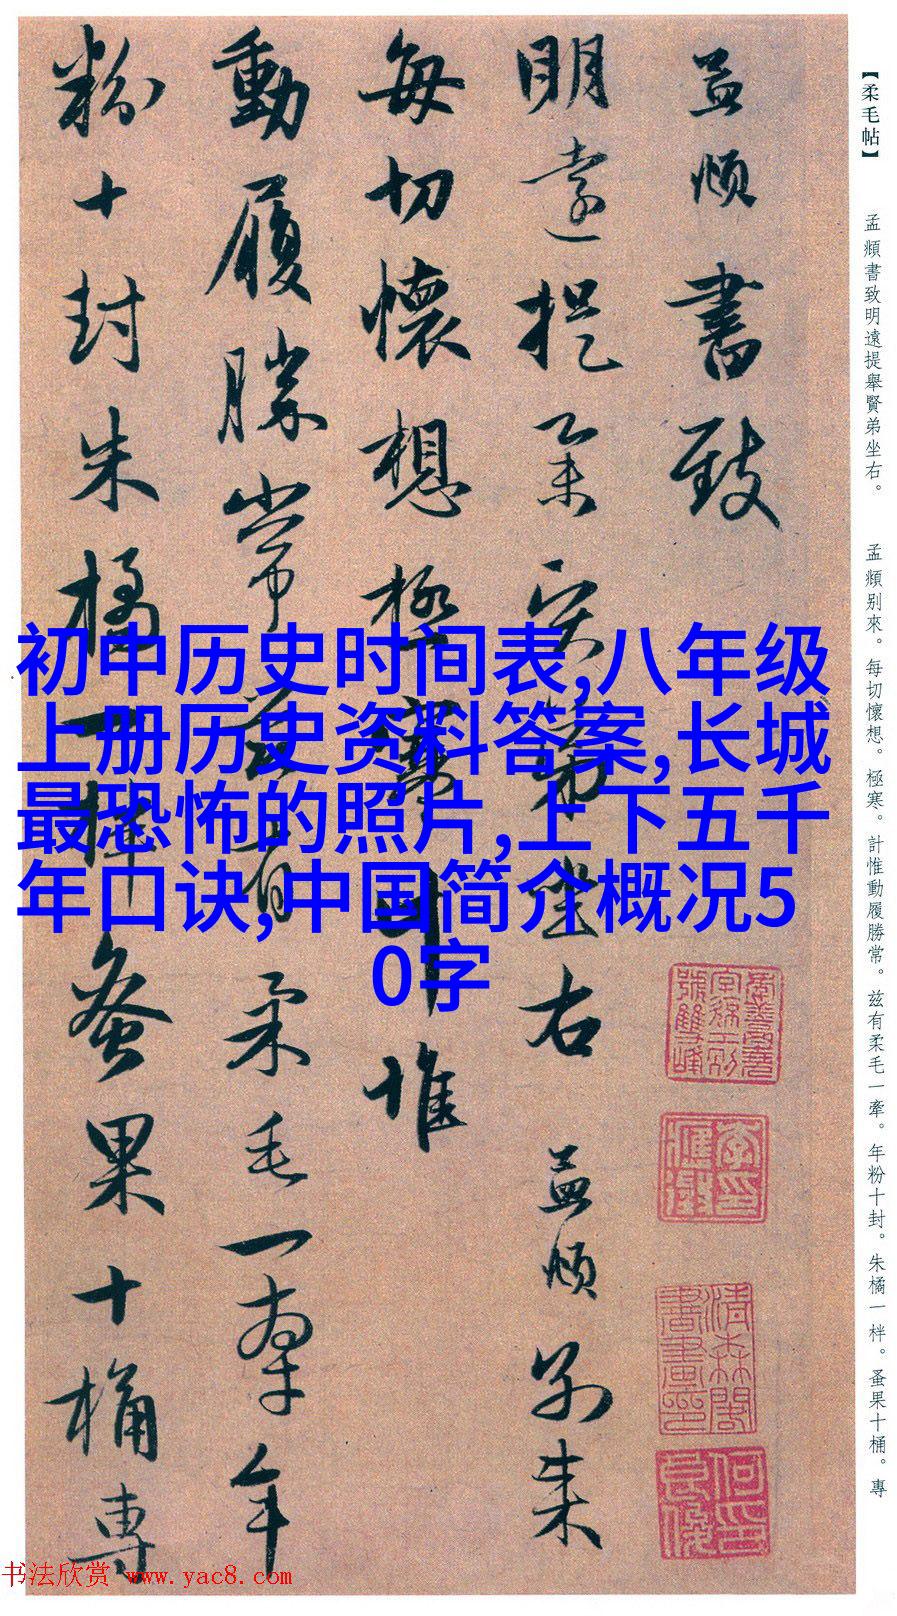 【柔毛帖】
孟頫書致明遠提舉賢弟坐右。
孟頫别來。每切懷想。極寒。計惟動履勝常。兹有柔毛一牽。年粉十封。朱橘一柈。蚤果十桶。專
孟頫書致
明遠提舉賢弟坐右 孟頫别來
每切懷想極寒計惟
動履勝常兹有柔毛一牽年
粉十封朱橘一柈蚤果十桶專
初中历史时间表,八年级
上册历史资料答案,长城
最恐怖的照片,上下五千
年口诀,中国简介概况5
0字
清森閣書畫印
书法欣赏 www.yac8.com